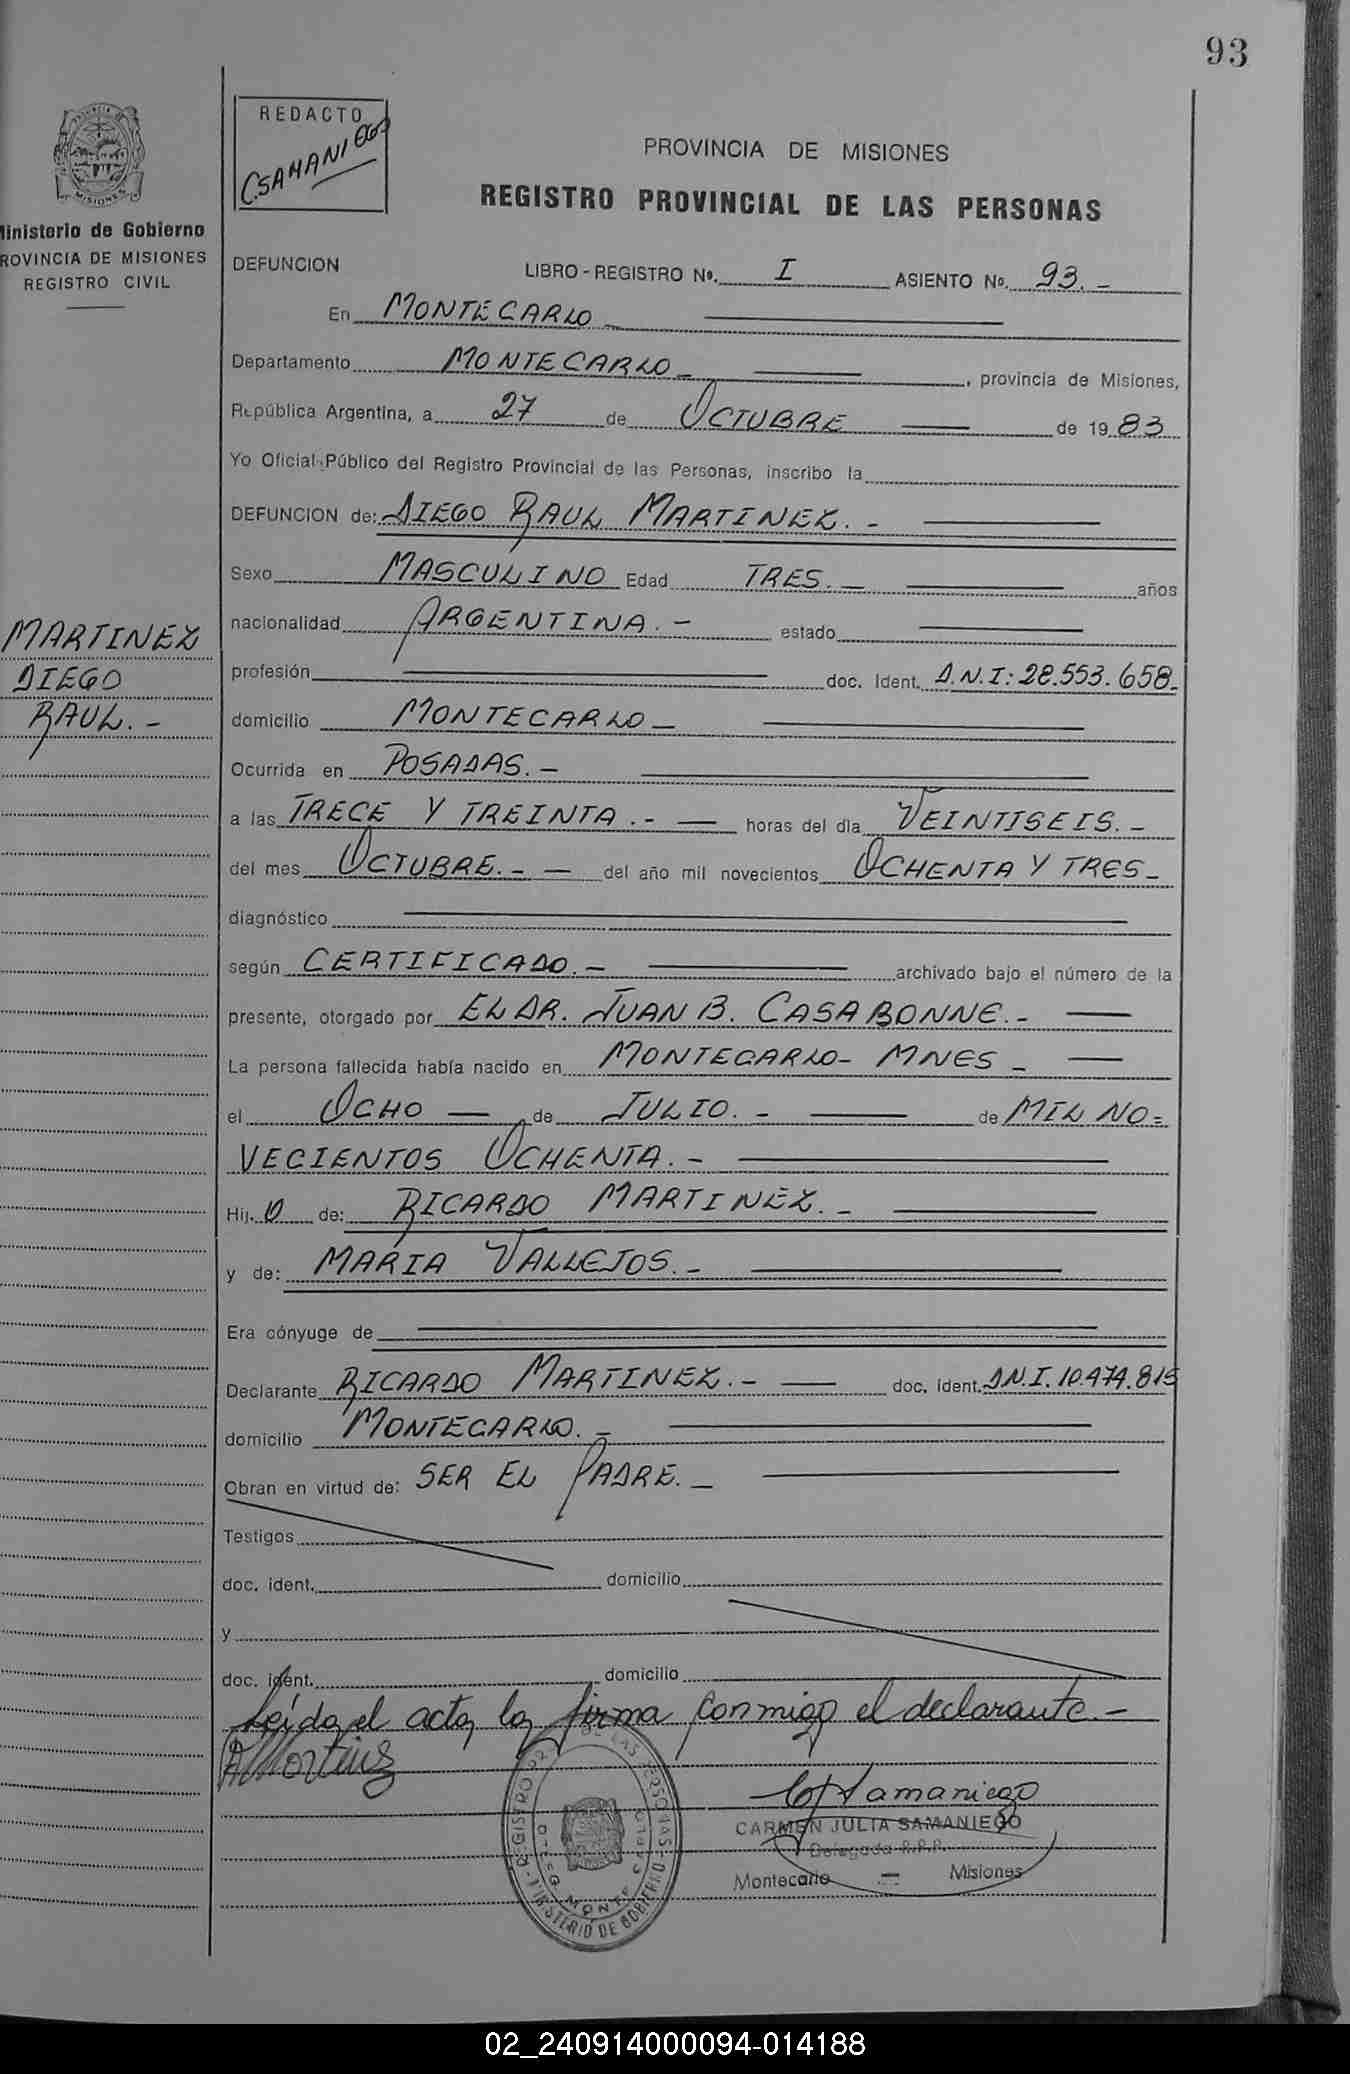 93
REDACTO
C.SAMANIEGO
PROVINCIA DE MISIONES
REGISTRO PROVINCIAL DE LAS PERSONAS
Ministerio de Gobierno
PROVINCIA DE MISIONES
REGISTRO CIVIL
DEFUNCION LIBRO - REGISTRO Nº. I ASIENTO Nº. 93. -
En MONTECARLO -
Departamento MONTECARLO - , provincia de Misiones,
República Argentina, a 27 de OCTUBRE de 19 83
Yo Oficial Público del Registro Provincial de las Personas, inscribo la
DEFUNCION de: DIEGO RAUL MARTINEZ. -
Sexo MASCULINO Edad TRES. - años
nacionalidad ARGENTINA. - estado
MARTINEZ
DIEGO
RAUL. -
profesión doc. Ident. D.N.I: 28.553.658.
domicilio MONTECARLO -
Ocurrida en POSADAS. -
a las TRECE Y TREINTA. - horas del día VEINTISEIS. -
del mes OCTUBRE. - del año mil novecientos OCHENTA Y TRES -
diagnóstico
según CERTIFICADO. - archivado bajo el número de la
presente, otorgado por EL DR. JUAN B. CASABONNE. -
La persona fallecida había nacido en MONTECARLO - MNES -
el OCHO de JULIO. - de MIL NO=
VECIENTOS OCHENTA. -
Hij. O de: RICARDO MARTINEZ. -
y de: MARIA VALLEJOS. -
Era cónyuge de
Declarante RICARDO MARTINEZ. - doc. ident. D.N.I. 10.474.815
domicilio MONTECARLO. -
Obran en virtud de: SER EL PADRE. -
Testigos
doc. ident. domicilio
y
doc. ident. domicilio
Leída el acta, la firma conmigo el declarante. -
RMartinez
CJSamaniego
CARMEN JULIA SAMANIEGO
Delegada R.P.P.
Montecarlo - Misiones
REGISTRO PROV. DE LAS PERSONAS
MINISTERIO DE GOBIERNO
02_240914000094-014188